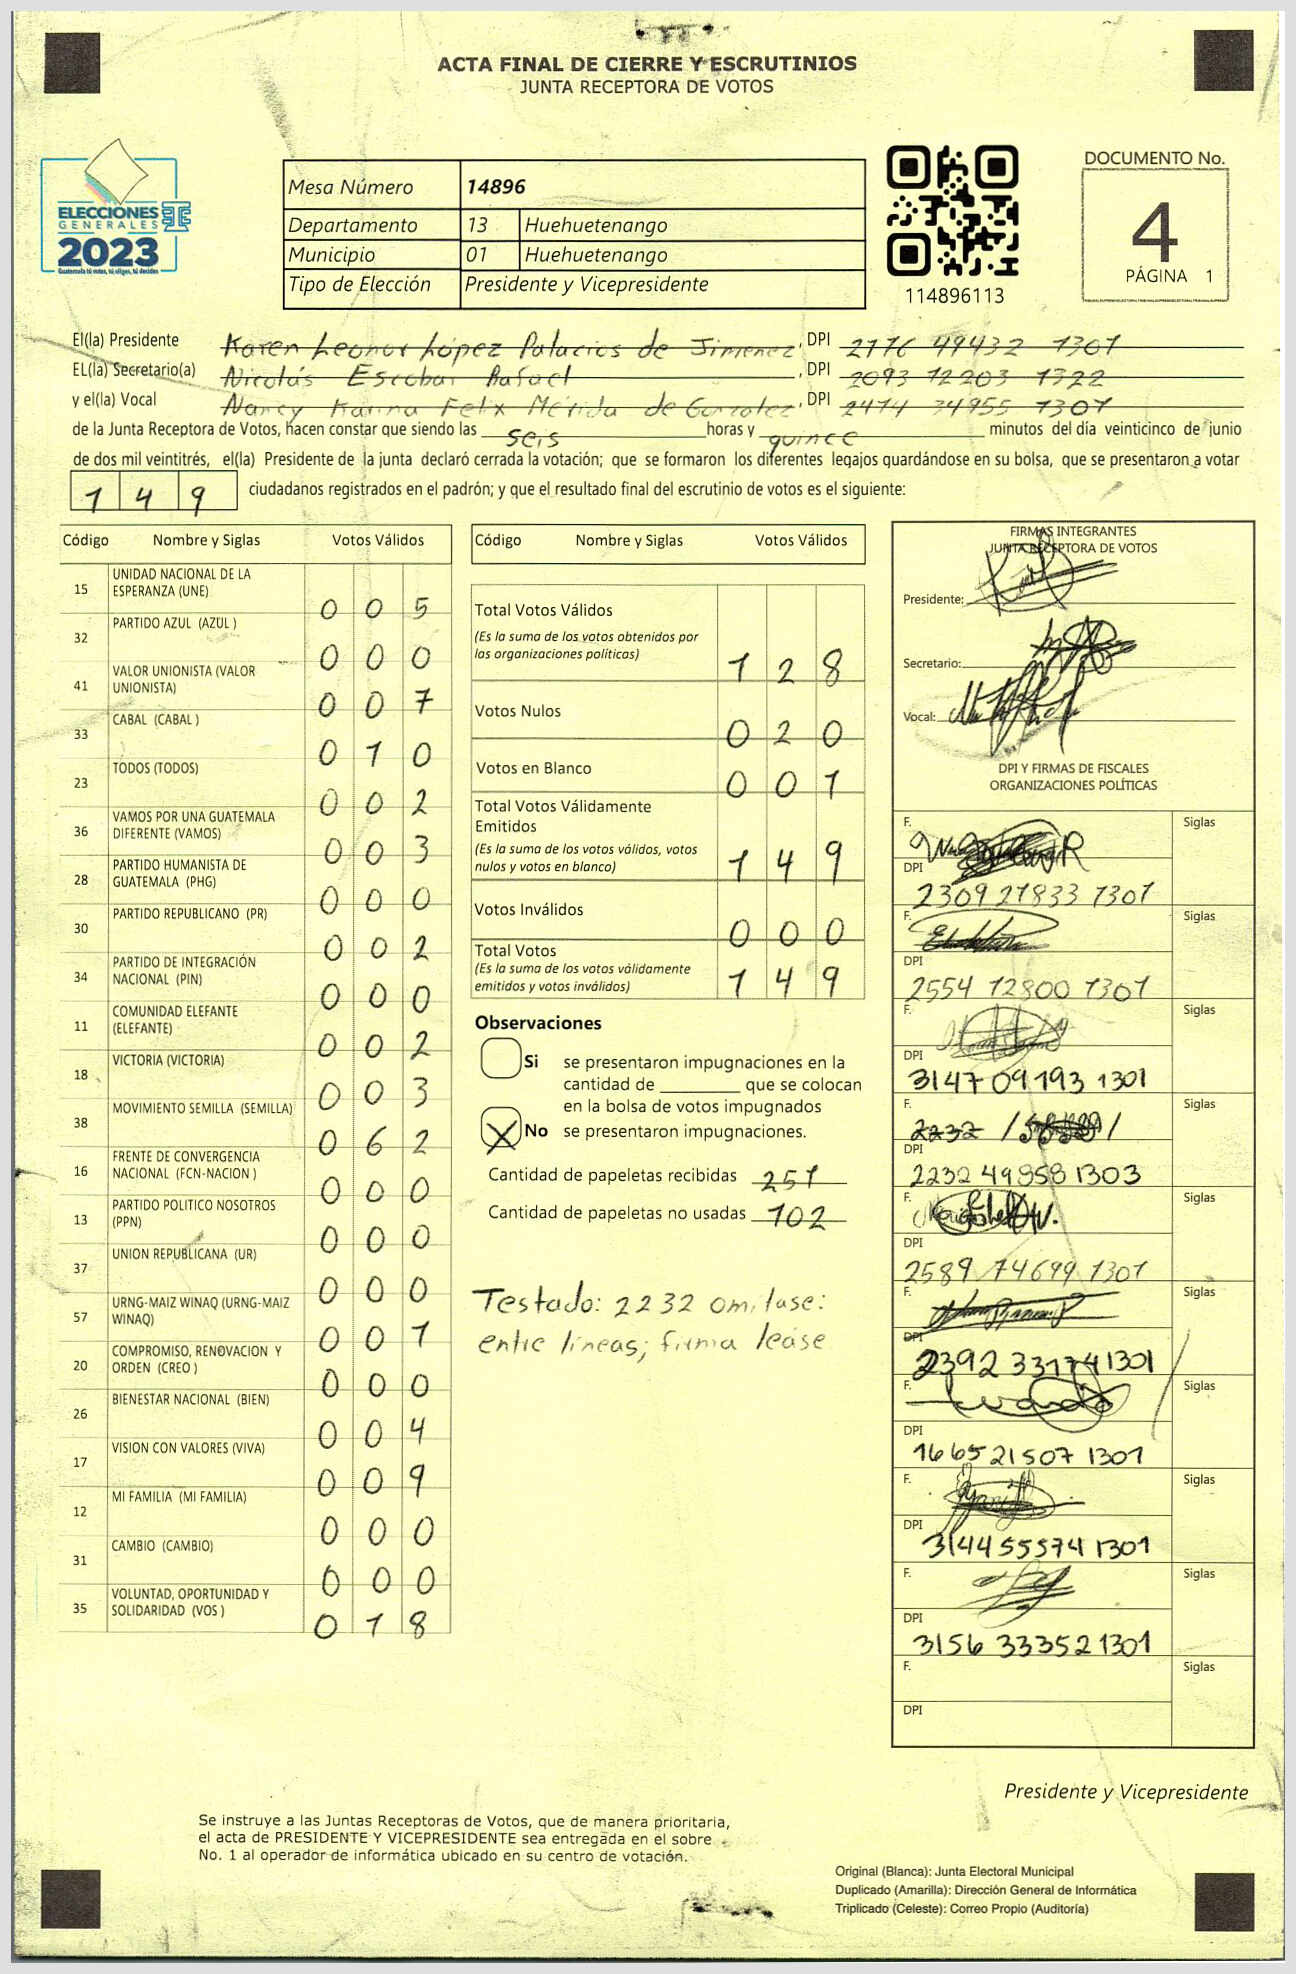 ACTA FINAL DE CIERRE Y ESCRUTINIOS
JUNTA RECEPTORA DE VOTOS
ELECCIONES
GENERALES
2023
Guatemala tú votas, tú eliges, tú decides
Mesa Número 14896
Departamento 13 Huehuetenango
Municipio 01 Huehuetenango
Tipo de Elección Presidente y Vicepresidente
114896113
DOCUMENTO No.
4
PÁGINA 1
El(la) Presidente Karen Leonor López Palacios de Jimenez, DPI 2176 49432 1301
EL(la) Secretario(a) Nicolás Escobar Rafael, DPI 2093 12203 1322
y el(la) Vocal Nancy Karina Felix Mérida de Gonzalez, DPI 2474 34955 1307
de la Junta Receptora de Votos, hacen constar que siendo las seis horas y quince minutos del día veinticinco de junio
de dos mil veintitrés, el(la) Presidente de la junta declaró cerrada la votación; que se formaron los diferentes legajos quardándose en su bolsa, que se presentaron a votar
149 ciudadanos registrados en el padrón; y que el resultado final del escrutinio de votos es el siguiente:
Código Nombre y Siglas Votos Válidos
15 UNIDAD NACIONAL DE LA ESPERANZA (UNE) 005
32 PARTIDO AZUL (AZUL ) 000
41 VALOR UNIONISTA (VALOR UNIONISTA) 007
33 CABAL (CABAL ) 010
23 TODOS (TODOS) 002
36 VAMOS POR UNA GUATEMALA DIFERENTE (VAMOS) 003
28 PARTIDO HUMANISTA DE GUATEMALA (PHG) 000
30 PARTIDO REPUBLICANO (PR) 002
34 PARTIDO DE INTEGRACIÓN NACIONAL (PIN) 000
11 COMUNIDAD ELEFANTE (ELEFANTE) 002
18 VICTORIA (VICTORIA) 003
38 MOVIMIENTO SEMILLA (SEMILLA) 062
16 FRENTE DE CONVERGENCIA NACIONAL (FCN-NACION ) 000
13 PARTIDO POLITICO NOSOTROS (PPN) 000
37 UNION REPUBLICANA (UR) 000
57 URNG-MAIZ WINAQ (URNG-MAIZ WINAQ) 001
20 COMPROMISO, RENOVACION Y ORDEN (CREO ) 000
26 BIENESTAR NACIONAL (BIEN) 004
17 VISION CON VALORES (VIVA) 009
12 MI FAMILIA (MI FAMILIA) 000
31 CAMBIO (CAMBIO) 000
35 VOLUNTAD, OPORTUNIDAD Y SOLIDARIDAD (VOS ) 018
Código Nombre y Siglas Votos Válidos
Total Votos Válidos
(Es la suma de los votos obtenidos por
las organizaciones políticas) 128
Votos Nulos 020
Votos en Blanco 001
Total Votos Válidamente
Emitidos
(Es la suma de los votos válidos, votos
nulos y votos en blanco) 149
Votos Inválidos 000
Total Votos
(Es la suma de los votos válidamente
emitidos y votos inválidos) 149
Observaciones
Si se presentaron impugnaciones en la
cantidad de ________ que se colocan
en la bolsa de votos impugnados
X No se presentaron impugnaciones.
Cantidad de papeletas recibidas 251
Cantidad de papeletas no usadas 102
Testado: 2232 omitase:
entre lineas; firma léase
FIRMAS INTEGRANTES
JUNTA RECEPTORA DE VOTOS
Presidente:
Secretario:
Vocal:
DPI Y FIRMAS DE FISCALES
ORGANIZACIONES POLÍTICAS
F. Siglas
DPI 2309 21833 1301
F. Siglas
DPI 2554 12800 1301
F. Siglas
DPI 3147 09193 1301
F. 2232 Siglas
DPI 2232 49858 1303
F. Siglas
DPI 2589 74699 1301
F. Siglas
DPI 2392 33174 1301
F. Siglas
DPI 1665 21507 1301
F. Siglas
DPI 3144 55574 1301
F. Siglas
DPI 3156 33352 1301
F. Siglas
DPI
Presidente y Vicepresidente
Se instruye a las Juntas Receptoras de Votos, que de manera prioritaria,
el acta de PRESIDENTE Y VICEPRESIDENTE sea entregada en el sobre
No. 1 al operador de informática ubicado en su centro de votación.
Original (Blanca): Junta Electoral Municipal
Duplicado (Amarilla): Dirección General de Informática
Triplicado (Celeste): Correo Propio (Auditoría)